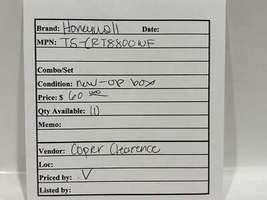 Brand: Honeywell Date:
MPN: TS-CRT8800WF
Combo/Set
Condition: new-op box
Price: $ 60
Qty Available: (1)
Memo:
Vendor: Copier Clearence
Loc:
Priced by: V
Listed by: